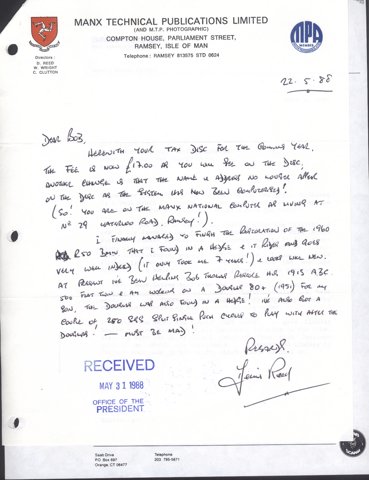 MANX TECHNICAL PUBLICATIONS LIMITED
(AND M.T.P. PHOTOGRAPHIC)
COMPTON HOUSE, PARLIAMENT STREET,
RAMSEY, ISLE OF MAN
Telephone: RAMSEY 813575 STD 0624
MPA
MEMBER
Directors:
D. REED
W. WRIGHT
C. CLUTTON
22.5.88
Dear Bob,
Herewith your tax disc for the coming year.
The fee is now £17.00 as you will see on the disc,
another change is that the name & address no longer appear
on the disc as the system has now been computerised!
(So! You are on the Manx National computer as living at
No 29 Waterloo Road, Ramsey!).
I finally managed to finish the restoration of the 1960
R50 BMW that I found in a hedge & it rides and goes
very well indeed (it only took me 7 years!) & looks like new.
At present I've been helping Bob Thomas restore his 1913 ABC
500 flat twin & am working on a Douglas 80+ (1951) for my
son, the Douglas was also found in a hedge! I've also got a
couple of 250 split single Puch to play with after the
Douglas! — must be mad!
Regards,
Reed
RECEIVED
MAY 31 1988
OFFICE OF THE
PRESIDENT
Sask Drive
P.O. Box 697
Orange, CT 06477
Telephone
203 795-5471